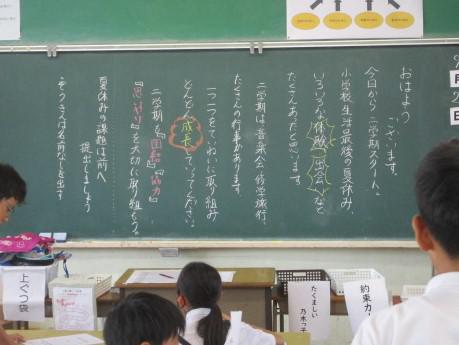 おはよう
ございます。
今日から二学期スタート。
小学校生活最後の夏休み、
いろいろな体験、出会いなど
たくさんあったと思います。
二学期は音楽会、修学旅行、
たくさんの行事があります。
一つ一つをていねいに取り組み
どんどん成長していってください。
二学期も『団結』『協力』
『思いやり』を大切に取り組もう。
夏休みの課題は前へ
提出しましょう
ぞうきんは名前なしを出す
月
日
上ぐつ袋
たくましい
乃木っ子
約束力